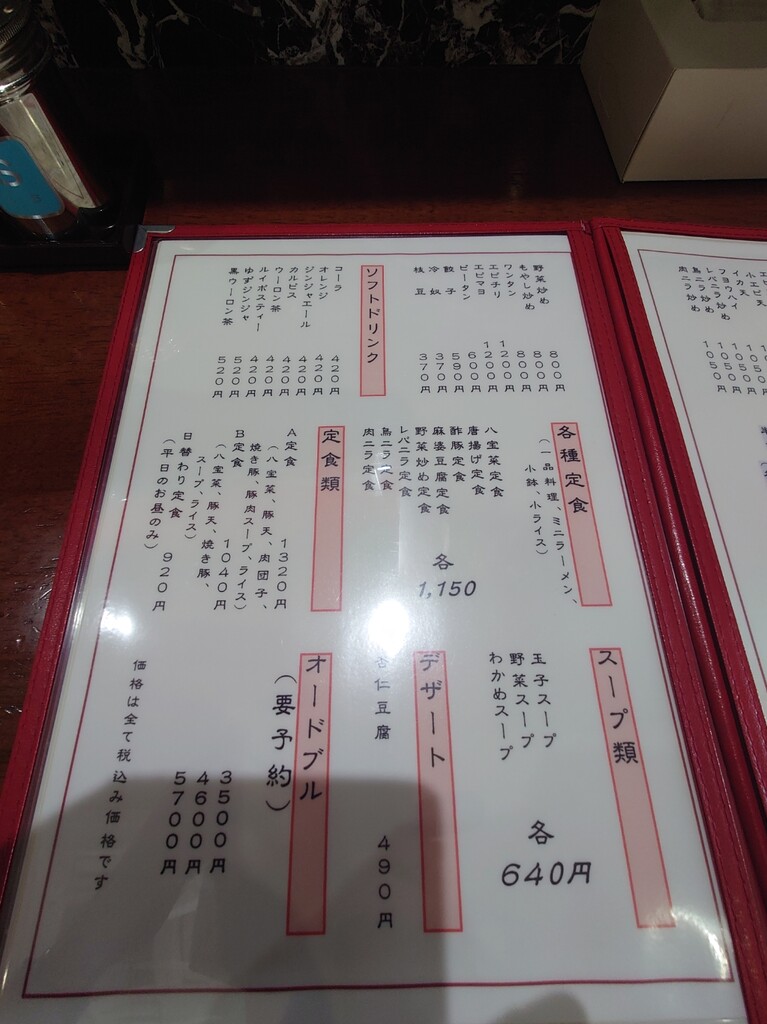 イカ天
フヨウハイ
レバニラ炒め 1050円
鳥ニラ炒め 1050円
肉ニラ炒め 1050円
野菜炒め 800円
もやし炒め 800円
ワンタン 800円
エビチリ 1200円
エビマヨ 1200円
ピータン 600円
餃子 590円
冷奴 370円
枝豆 370円
ソフトドリンク
コーラ 420円
オレンジ 420円
ジンジャエール 420円
カルピス 420円
ウーロン茶 420円
ルイボスティー 420円
ゆずジンジャ 520円
黒ウーロン茶 520円
各種定食
(一品料理、ミニラーメン、
小鉢、小ライス)
八宝菜定食
唐揚げ定食
酢豚定食
麻婆豆腐定食
野菜炒め定食
レバニラ定食
鳥ニラ定食
肉ニラ定食
各
1,150
定食類
A定食 1320円
(八宝菜、豚天、肉団子、
焼き豚、豚肉スープ、ライス)
B定食 1040円
(八宝菜、豚天、焼き豚、
スープ、ライス)
日替わり定食 920円
(平日のお昼のみ)
スープ類
玉子スープ
野菜スープ
わかめスープ
各
640円
デザート
杏仁豆腐 490円
オードブル
(要予約)
3500円
4600円
5700円
価格は全て税込み価格です